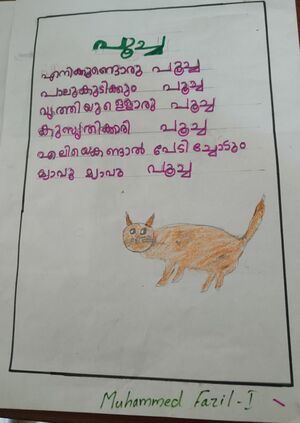 പൂച്ച
എനിക്കുണ്ടൊരു പൂച്ച
പാലുകുടിക്കും പൂച്ച
വൃത്തിയുള്ളൊരു പൂച്ച
കുസൃതിക്കാരി പൂച്ച
എലിയെകണ്ടാൽ പേടിച്ചോടും
മ്യാവൂ മ്യാവു പൂച്ച
Muhammed Fazil - I